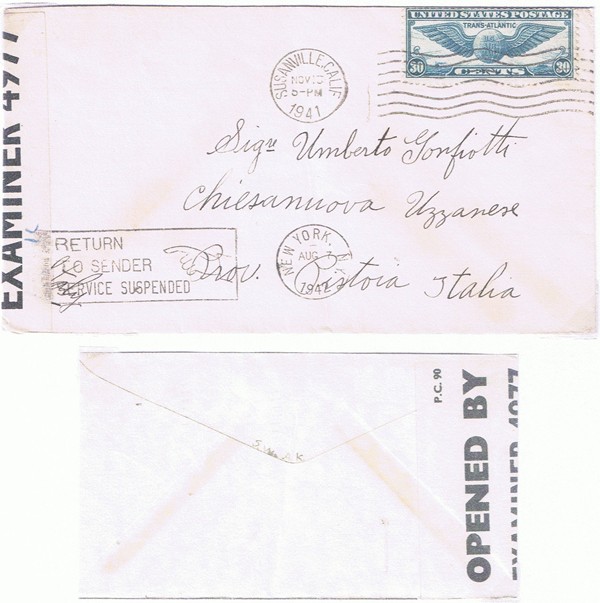 EXAMINER 4977
UNITED STATES POSTAGE
TRANS-ATLANTIC
30 CENTS 30
SUSANVILLE, CALIF.
NOV 15
5-PM
1941
Sigre Umberto Gonfiotti
Chiesanuova Uzzanese
Prov. Pistoia Italia
RETURN
TO SENDER
SERVICE SUSPENDED
NEW YORK, N.Y.
AUG
194
P.C. 90
OPENED BY
EXAMINER 4977
S.W.A.K